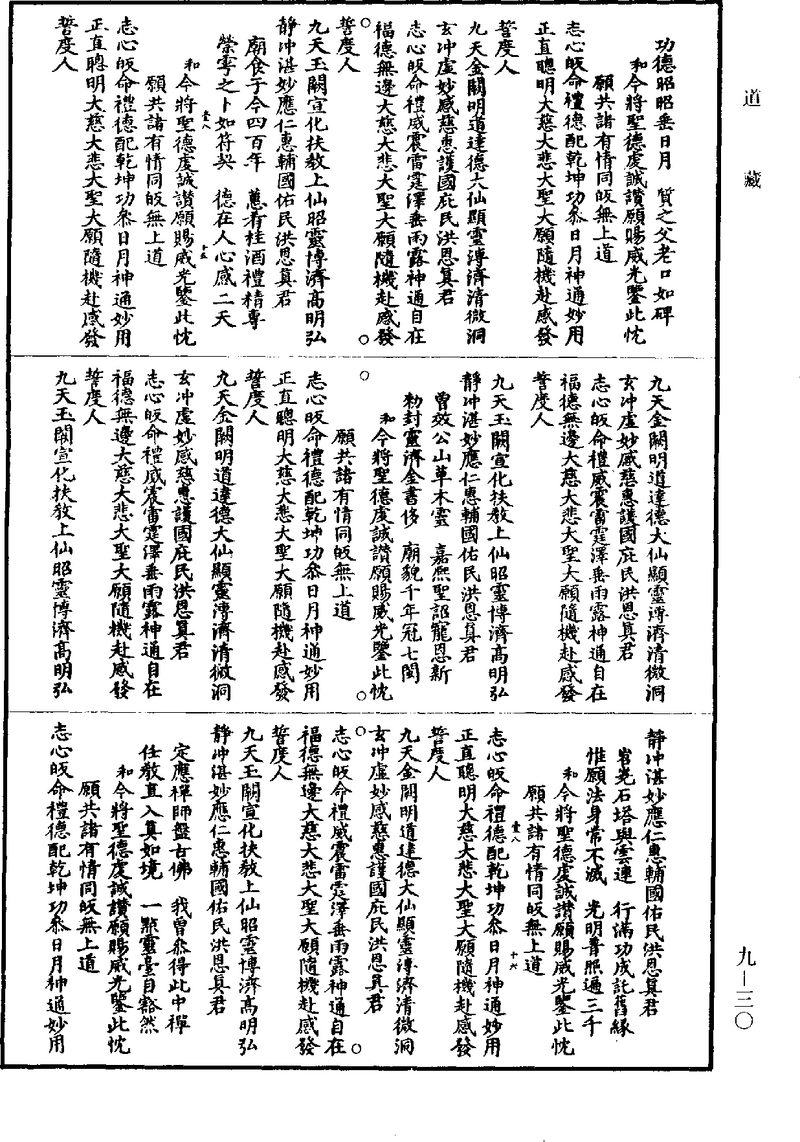 道藏
功德昭昭垂日月　質之父老口如碑
和今將聖德虔誠讚願賜威光鑒此忱
願共諸有情同皈無上道
志心皈命禮德配乾坤功叅日月神通妙用
正直聰明大慈大悲大聖大願隨機赴感發
誓度人
九天金闕明道達德大仙顯靈溥濟清微洞
玄冲虛妙感慈惠護國庇民洪恩真君
志心皈命禮威震雷霆澤垂雨露神通自在
福德無邊大慈大悲大聖大願隨機赴感發
誓度人
九天玉闕宣化扶教上仙昭靈博濟高明弘
靜冲湛妙應仁惠輔國佑民洪恩真君
廟食于今四百年　蕙肴桂酒禮精專
禜雩之卜如符契　德在人心感二天
和今將聖德虔誠讚願賜威光鑒此忱
願共諸有情同皈無上道
志心皈命禮德配乾坤功叅日月神通妙用
正直聰明大慈大悲大聖大願隨機赴感發
誓度人
九天金闕明道達德大仙顯靈溥濟清微洞
玄冲虛妙感慈惠護國庇民洪恩真君
志心皈命禮威震雷霆澤垂雨露神通自在
福德無邊大慈大悲大聖大願隨機赴感發
誓度人
九天玉闕宣化扶教上仙昭靈博濟高明弘
靜冲湛妙應仁惠輔國佑民洪恩真君
曾效公山草木靈　嘉熙聖詔寵恩新
勑封靈濟金書侈　廟貌千年冠七閩
和今將聖德虔誠讚願賜威光鑒此忱
願共諸有情同皈無上道
志心皈命禮德配乾坤功叅日月神通妙用
正直聰明大慈大悲大聖大願隨機赴感發
誓度人
九天金闕明道達德大仙顯靈溥濟清微洞
玄冲虛妙感慈惠護國庇民洪恩真君
志心皈命禮威震雷霆澤垂雨露神通自在
福德無邊大慈大悲大聖大願隨機赴感發
誓度人
九天玉闕宣化扶教上仙昭靈博濟高明弘
靜冲湛妙應仁惠輔國佑民洪恩真君
岧嶤石塔與雲連　行滿功成託舊緣
惟願法身常不滅　光明普照遍三千
和今將聖德虔誠讚願賜威光鑒此忱
願共諸有情同皈無上道
志心皈命禮德配乾坤功叅日月神通妙用
正直聰明大慈大悲大聖大願隨機赴感發
誓度人
九天金闕明道達德大仙顯靈溥濟清微洞
玄冲虛妙感慈惠護國庇民洪恩真君
志心皈命禮威震雷霆澤垂雨露神通自在
福德無邊大慈大悲大聖大願隨機赴感發
誓度人
九天玉闕宣化扶教上仙昭靈博濟高明弘
靜冲湛妙應仁惠輔國佑民洪恩真君
定應禪師盤古佛　我曾叅得此中禪
任教直入真如境　一點靈臺自豁然
和今將聖德虔誠讚願賜威光鑒此忱
願共諸有情同皈無上道
志心皈命禮德配乾坤功叅日月神通妙用
九—三〇